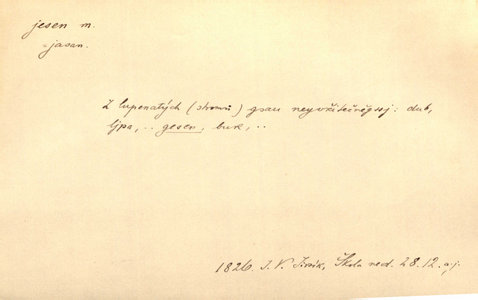 jesen m.
= jasan.
Z lupenatých (stromů) gsau neyužitečněgssj: dub,
ljpa, .. gesen, buk, ..
1826. J. V. Jirsík, Škola ned. 28. 12. a j.